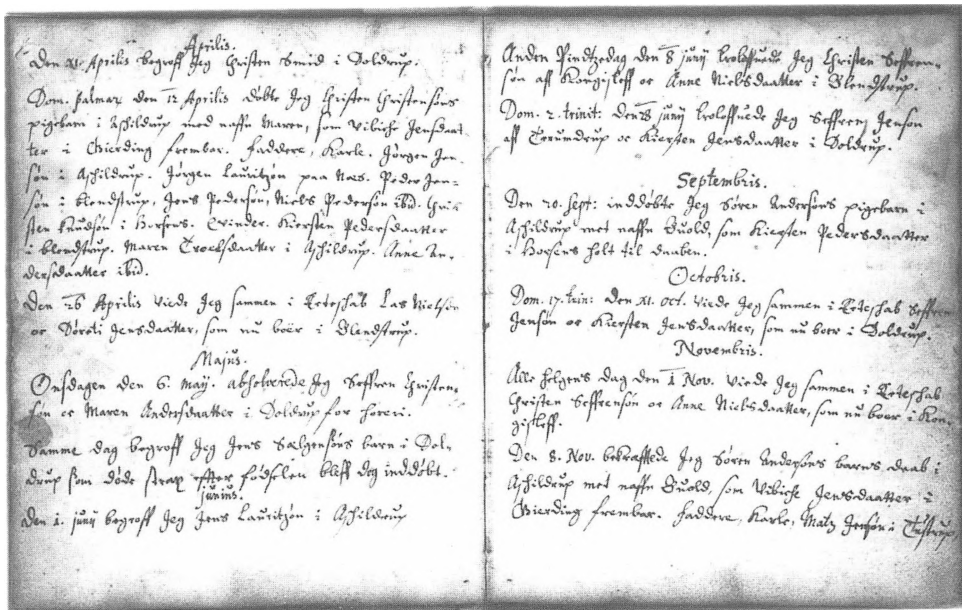 Aprilis.
Den XI. Aprilis begroff Jeg Christen Smid i Doldrup.
Dom. palmar. den 12 Aprilis døbte Jeg Christen Christensøns
pigebarn i Ashildrup med naffn Maren, som Vibiche Jensdaat-
ter i Gierding frembar. Faddere, Karle. Jørgen Jen-
søn i Ashildrup. Jørgen Lauritzøn paa Næs. Peder Jen-
søn i blendstrup, Jens Pedersøn, Niels Pedersøn ibid. Chri-
sten Knudsøn i Horsens. Qvinder. Kiersten Pedersdaatter
i blendstrup. Maren Troelsdaatter i Ashildrup. Anne An-
dersdaatter ibid.
Den 26 Aprilis viede Jeg sammen i Ecteschab Las Nielsøn
oc Dorete Jensdaatter, som nu boer i Blendstrup.
Majus.
Onsdagen den 6. May. absolverede Jeg Seffren Christen-
søn oc Maren Andersdaatter i Doldrup for horeri.
Samme dag begroff Jeg Jens barn i Dol-
drup som døde strax effter fødselen bleff dog inddøbt.
Junius.
Den 1. Junij begroff Jeg Jens Lauritzøn i Ashildrup
Anden Pindtzedag den 8 Junij trolofuede Jeg Christen Seffren-
søn aff Kongisleff oc Anne Nielsdaatter i Blendstrup.
Dom. 2. trinit: den Junij trolofuede Jeg Seffren Jensøn
aff Torundrup oc Kiersten Jensdaatter i Doldrup.
Septembris.
Den 20. Sept: inddøbte Jeg Søren Andersøns pigebarn i
Ashildrup met naffn Buold, som Kiersten Pedersdaatter
i Horsens holt til daaben.
Octobris.
Dom. 17. trin: den XI. Oct. viede Jeg sammen i Ecteschab Seffren
Jensøn oc Kiersten Jensdaatter, som nu boer i Doldrup.
Novembris.
Alle helgens dag den 1 Nov. viede Jeg sammen i Ecteschab
Christen Seffrensøn oc Anne Nielsdaatter, som nu boer i Kon-
gisleff.
Den 8. Nov. bekrafftede Jeg Søren Andersøns barns daab i
Ashildrup met naffn Buold, som Vibiche Jensdaatter i
Gierding frembar. Faddere, Karle, Matz Jensøn i Tustrup